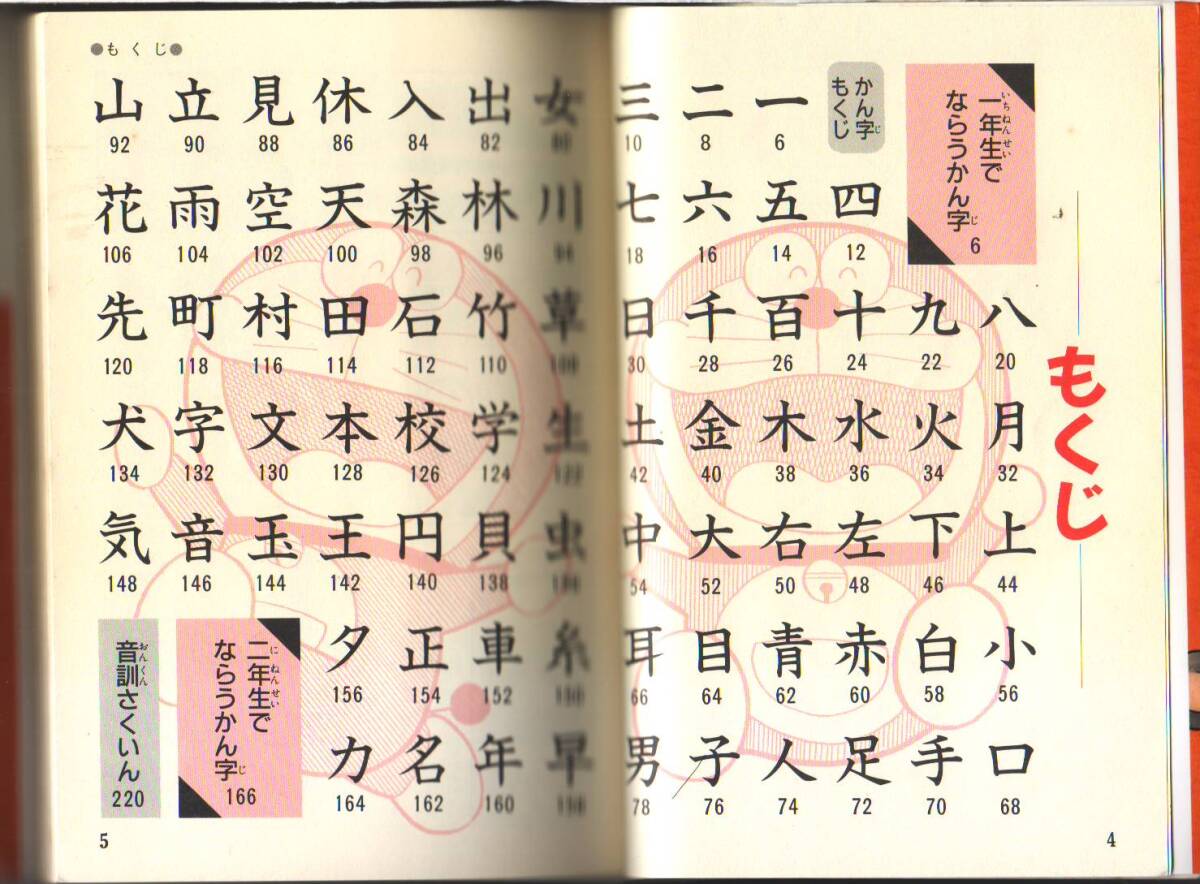 もくじ
一年生で
いちねんせい
ならうかん字
じ
6
かん字
じ
もくじ
一 二 三
6 8 10
四 五 六 七
12 14 16 18
八 九 十 百 千 日
20 22 24 26 28 30
月 火 水 木 金 土
32 34 36 38 40 42
上 下 左 右 大 中
44 46 48 50 52 54
小 白 赤 青 目 耳
56 58 60 62 64 66
口 手 足 人 子 男
68 70 72 74 76 78
4
●もくじ●
女 出 入 休 見 立 山
80 82 84 86 88 90 92
川 林 森 天 空 雨 花
94 96 98 100 102 104 106
草 竹 石 田 村 町 先
108 110 112 114 116 118 120
生 学 校 本 文 字 犬
122 124 126 128 130 132 134
虫 貝 円 王 玉 音 気
136 138 140 142 144 146 148
糸 車 正 夕
150 152 154 156
早 年 名 力
158 160 162 164
二年生で
にねんせい
ならうかん字
じ
166
音訓さくいん
おんくん
220
5